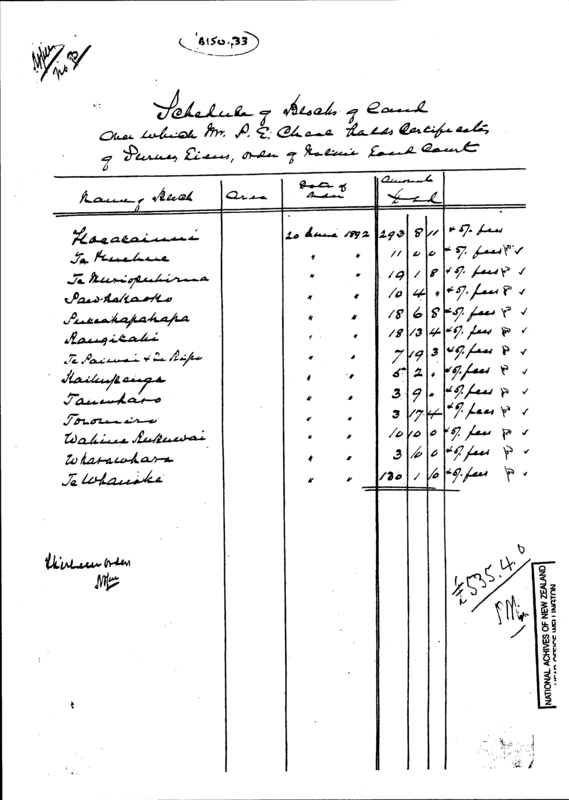 B150.33
No B
Schedule of Blocks of Land
Over which Mr. P. E. Cheal holds Certificates
of Survey Liens, order of Native Land Court
Name of Block Area Date of Order Amount
£ s d
20 June 1892 293 8 11 + 5/. fees
" " 11 0 0 + 5/. fees P
" " 19 1 8 + 5/. fees P
" " 10 4 . + 5/. fees P
Pukeahapahapa " " 18 6 8 + 5/. fees P
Rangitaki " " 18 13 4 + 5/. fees P
Te Paiwai + Te Ripo " " 7 19 3 + 5/. fees P
" " 5 2 . + 5/. fees P
Tauwharo " " 3 9 . + 5/. fees P
Toromiro " " 3 17 4 + 5/. fees P
Wahine Rukuwai " " 10 10 0 + 5/. fees P
Wharawhara " " 3 10 0 + 5/. fees P
Te Whanake " " 130 1 10 + 5/. fees P
Thirteen orders
£535.4.0
NATIONAL ACHIVES OF NEW ZEALAND
HEAD OFFICE WELLINGTON